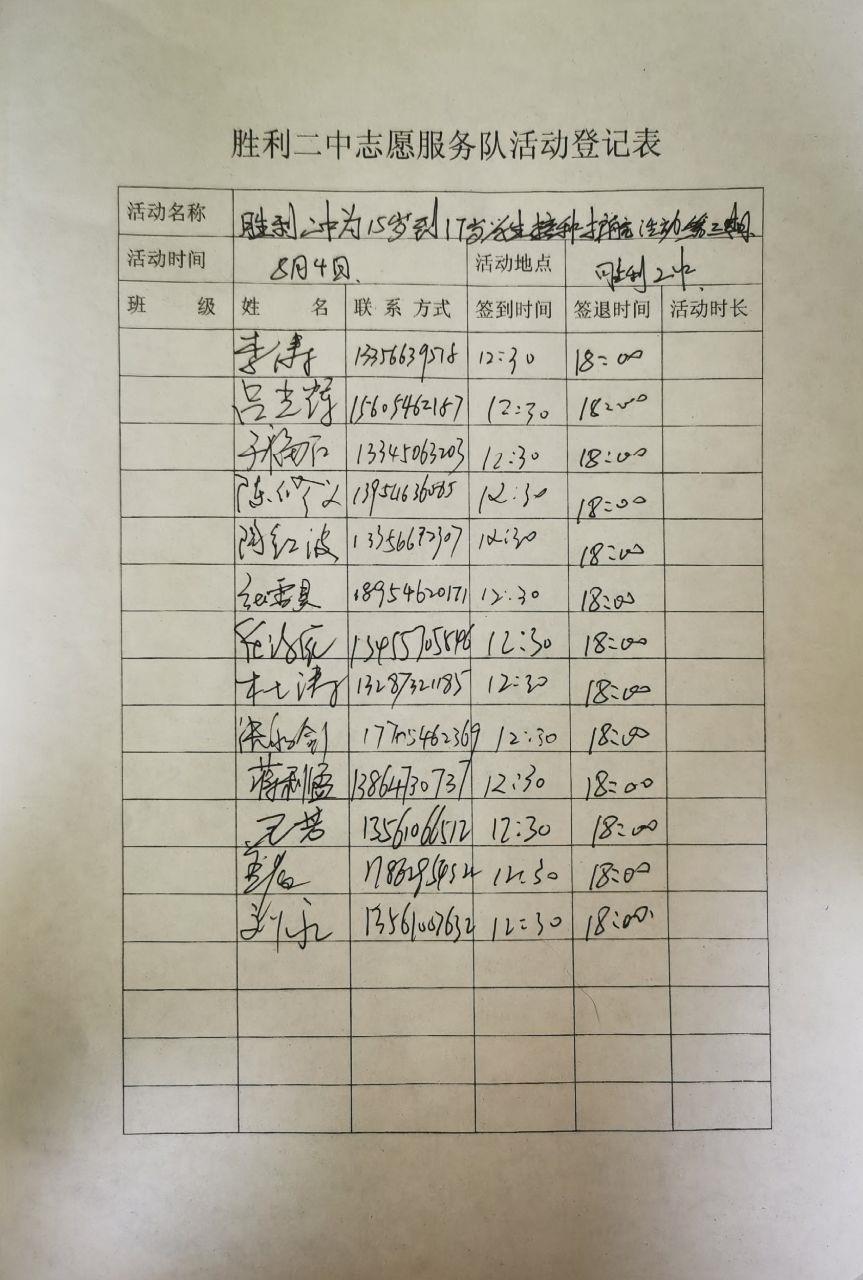 胜利二中志愿服务队活动登记表
活动名称 胜利二中为15岁到17岁学生接种护航活动第二期
活动时间 8月4日. 活动地点 胜利二中.
班 级 姓 名 联系方式 签到时间 签退时间 活动时长
李涛 13356639578 12:30 18:00
吕光辉 15605462187 12:30 18:00
13345063203 12:30 18:00
陈修义 12:30 18:00
陶红波 12:30 18:00
18954620171 12:30 18:00
13455705846 12:30 18:00
杜涛 13287321185 12:30 18:00
12:30 18:00
蒋利孟 13864730737 12:30 18:00
王芳 13561066512 12:30 18:00
12:30 18:00
刘永 12:30 18:00